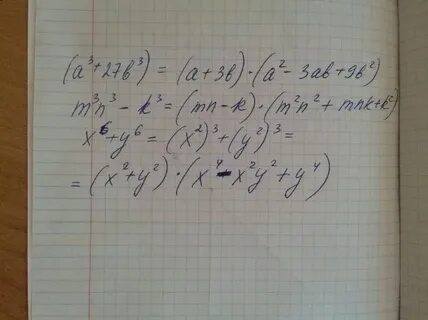 (a³+27b³) = (a+3b)·(a²-3ab+9b²)
m³n³-k³=(mn-k)·(m²n²+mnk+k²)
x⁶+y⁶=(x²)³+(y²)³=
=(x²+y²)·(x⁴-x²y²+y⁴)